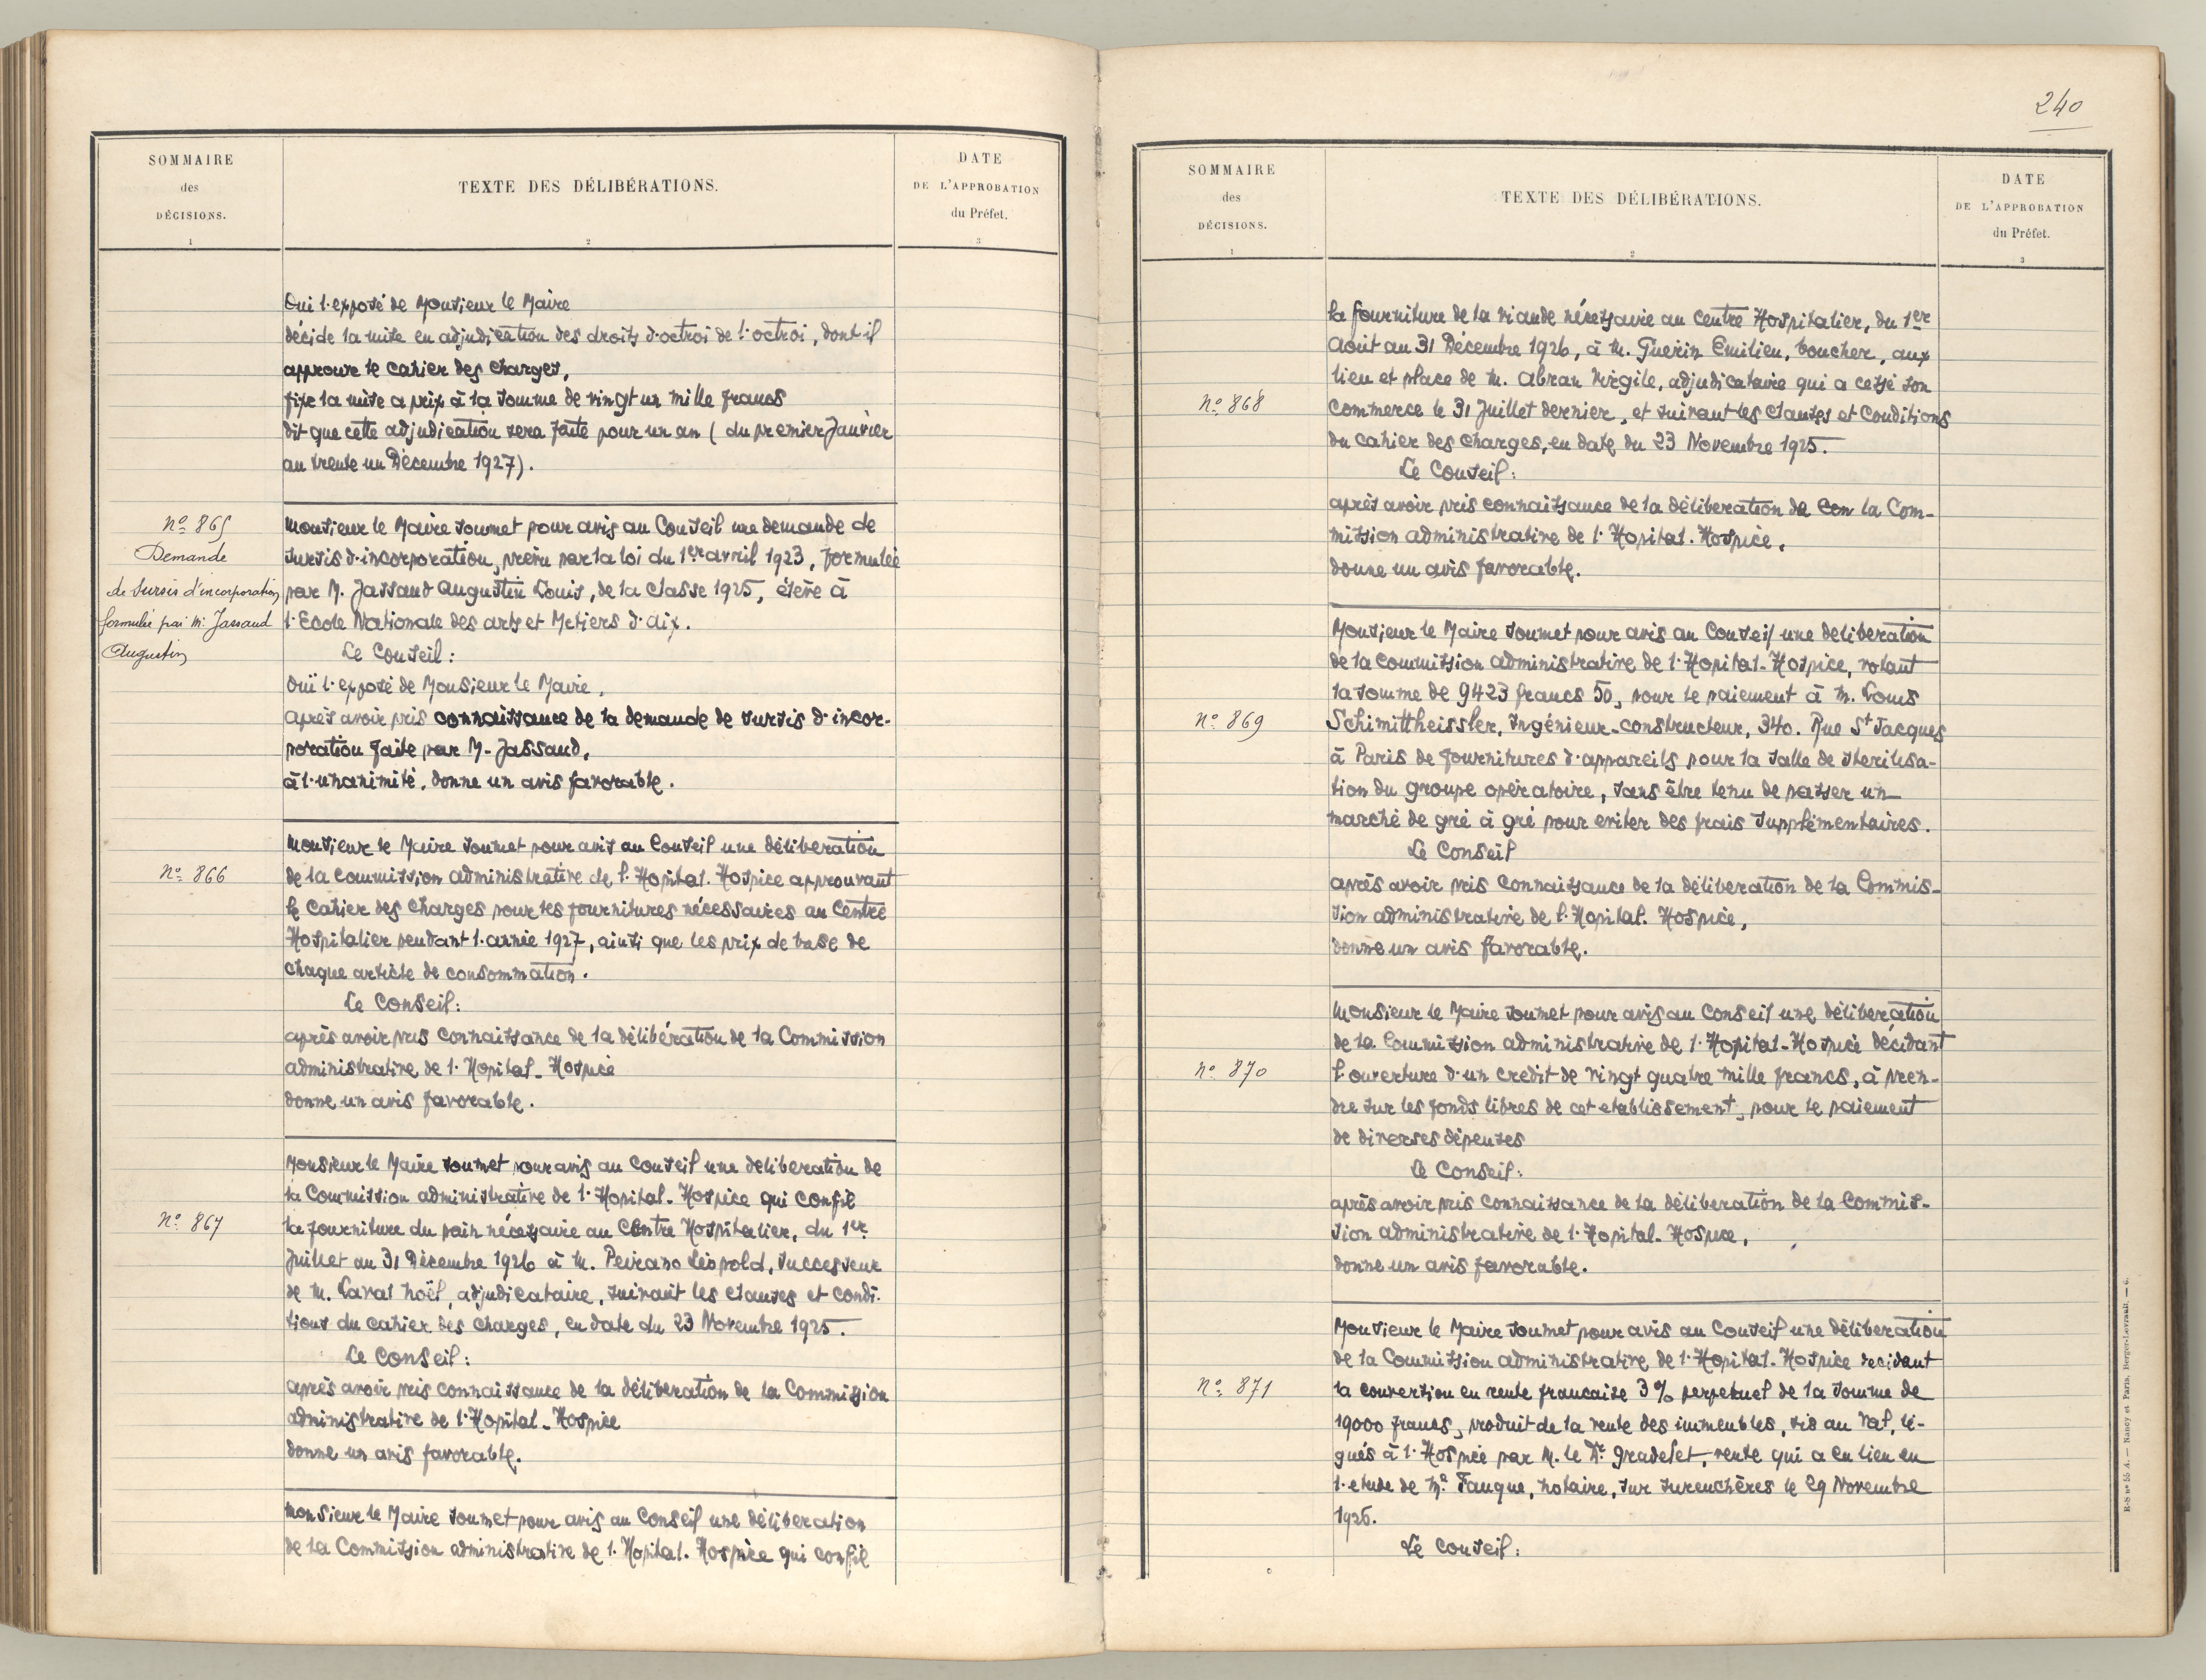 SOMMAIRE
des
DÉCISIONS.
1
TEXTE DES DÉLIBÉRATIONS.
2
DATE
DE L'APPROBATION
du Préfet.
3
Oui l'exposé de Monsieur le Maire
décide la mise en adjudication des droits d'octroi de l'octroi, dont il
approuve le cahier des charges,
fixe la mise a prix à la somme de vingt un mille francs
dit que cette adjudication sera faite pour un an ( du premier Janvier
au trente un Décembre 1927).
No 865
Demande
de sursis d'incorporation
formulée par M. Jassaud
Augustin
Monsieur le Maire soumet pour avis au Conseil une demande de
sursis d'incorporation, prévu par la loi du 1er avril 1923, formulée
par M. Jassaud Augustin Louis, de la classe 1925, élève à
l'Ecole Nationale des arts et Metiers d'aix.
Le Conseil :
Ouï l'exposé de Monsieur le Maire,
après avoir pris connaissance de la demande de sursis d'incor-
poration faite par M. Jassaud,
à l'unanimité, donne un avis favorable.
No 866
Monsieur le Maire soumet pour avis au Conseil une déliberation
de la commission administrative de l'Hopital. Hospice approuvant
le Cahier des Charges pour les fournitures nécessaires au Centre
Hospitalier pendant l'année 1927, ainsi que les prix de base de
chaque article de consommation.
Le Conseil :
après avoir pris connaissance de la délibération de la Commission
administrative de l'Hopital - Hospice
donne un avis favorable.
No 867
Monsieur le Maire soumet pour avis au Conseil une deliberation de
la Commission administrative de l'Hopital - Hospice qui confie
la fourniture du pain nécessaire au Centre Hospitalier, du 1er
Juillet au 31 Décembre 1926 à M. Peirano Léopold, successeur
de M. Laval Noël, adjudicataire, suivant les clauses et condi-
tions du cahier des charges, en date du 23 Novembre 1925.
Le Conseil :
après avoir pris connaissance de la déliberation de la Commission
administrative de l'Hopital - Hospice
donne un avis favorable.
Monsieur le Maire soumet pour avis au Conseil une déliberation
de la Commission administrative de l'Hopital. Hospice qui confie
240
SOMMAIRE
des
DÉCISIONS.
1
TEXTE DES DÉLIBÉRATIONS.
2
DATE
DE L'APPROBATION
du Préfet.
3
la fourniture de la viande nécessaire au Centre Hospitalier, du 1er
Août au 31 Décembre 1926, à M. Guérin Emilien, boucher, aux
lieu et place de M. Abran Virgile, adjudicataire qui a cessé son
No 868
commerce le 31 Juillet dernier, et suivant les clauses et conditions
du cahier des charges, en date du 23 Novembre 1925.
Le Conseil :
après avoir pris connaissance de la déliberation de Com la Com-
mission administrative de l'Hopital. Hospice,
donne un avis favorable.
Monsieur le Maire soumet pour avis au Conseil une deliberation
de la commission administrative de l'Hopital - Hospice, votant
la somme de 9423 francs 50, pour le paiement à M. Louis
No 869
Schimittheissler, Ingénieur-constructeur, 340. Rue St Jacques
à Paris de fournitures d'appareils pour la salle de sterilisa-
tion du groupe opératoire, sans être tenu de passer un
marché de gré à gré pour eviter des frais supplémentaires.
Le Conseil
après avoir pris connaissance de la déliberation de la Commis-
sion administrative de l'Hopital. Hospice,
donne un avis favorable.
Monsieur le Maire soumet pour avis au Conseil une déliberation
de la Commission administrative de l'Hopital - Hospice décidant
No 870
l'ouverture d'un credit de vingt quatre mille francs, à pren-
dre sur les fonds libres de cet etablissement, pour le paiement
de diverses dépenses
Le Conseil :
après avoir pris connaissance de la déliberation de la Commis-
sion administrative de l'Hopital - Hospice,
donne un avis favorable.
Monsieur le Maire soumet pour avis au Conseil une déliberation
de la Commission administrative de l'Hopital - Hospice decidant
No 871
la conversion en rente francaise 3% perpetuel de la somme de
19000 francs, produit de la vente des immeubles, sis au Val, lé-
gués à l'Hospice par M. le Dr Gradelet, vente qui a eu lieu en
l'etude de Me Fauque, notaire, sur surenchères le 29 Novembre
1926.
Le Conseil :
R-S no 55 A. — Nancy et Paris, Berger-Levrault. — 6.